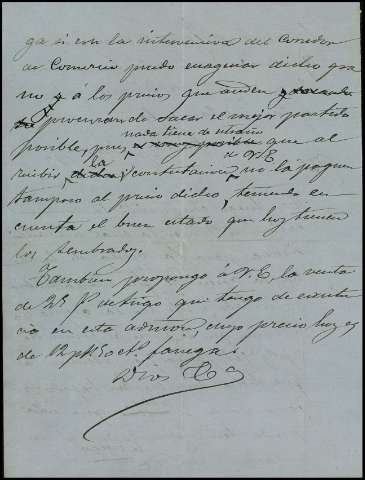 ga si con la intervencion del Corredor
de Comercio puedo enagenar dicho gra
no á los precios que anden
y procurando sacar el mejor partido
nada tiene de estraño
posible, pues que al
á V.E.
recibir la contestacion no la paguen
tampoco al precio dicho, teniendo en
cuenta el buen estado que hoy tienen
los sembrados.
Tambien propongo á V.E. la venta
de 25 f.s de trigo que tengo de existen
cia en esta admon, cuyo precio hoy es
de 12 pts 50 cts. fanega.
Dios &a